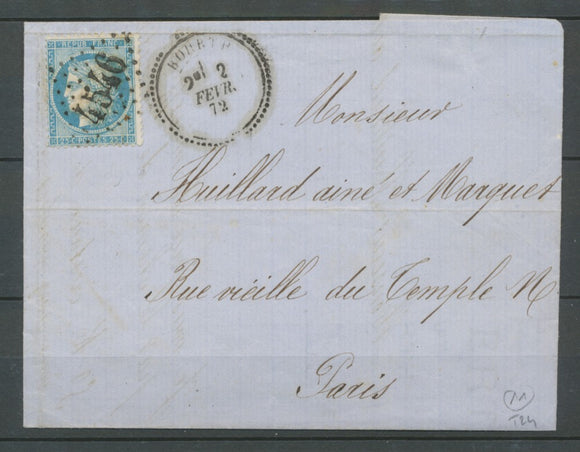 REPUB. FRANC.
4546
25 C. POSTES 25 C.
2
FEVR.
72
Monsieur
Huillard ainé et Marquet
Rue vieille du Temple N
Paris
11
T24